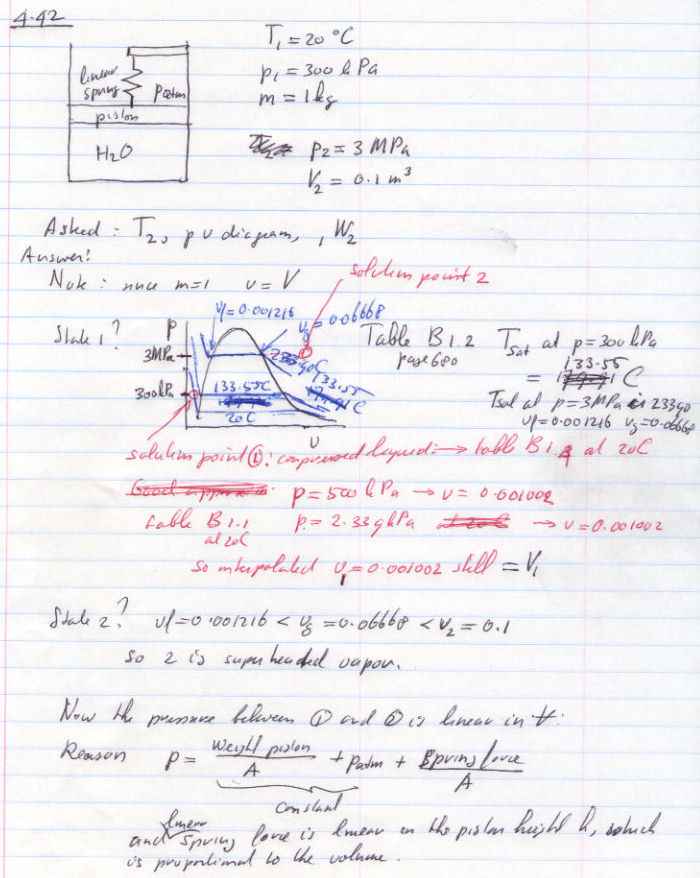 4.42
T1 = 20 °C
p1 = 300 kPa
m = 1 kg
linear
spring
Patm
piston
H2O
p2 = 3 MPa
V2 = 0.1 m³
Asked: T2, p v diagram, , W2
Answer:
Note: since m=1 v = V
solution point 2
State 1?
P
vf = 0.001216
vg = 0.06668
3 MPa
23390C
300 kPa
133.55C
133.55
C
20C
v
Table B 1.2
page 680
Tsat at p = 300 kPa
133.55
= C
Tsat at p = 3MPa is 23390
vf = 0.001216 vg = 0.06668
solution point ①: compressed liquid: → table B 1.4 at 20C
p = 500 kPa → v = 0.001002
table B 1.1 p = 2.339 kPa → v = 0.001002
at 20C
so interpolated v1 = 0.001002 still = V1
State 2? vf = 0.001216 < vg = 0.06668 < v2 = 0.1
so 2 is superheated vapor.
Now the pressure between ① and ② is linear in V:
Reason P = Weight piston / A + Patm + Spring force / A
constant
linear
and spring force is linear in the piston height h, which
is proportional to the volume.